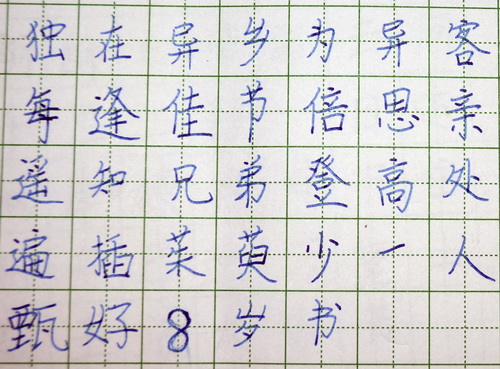 独在异乡为异客
每逢佳节倍思亲
遥知兄弟登高处
遍插茱萸少一人
甄好8岁书